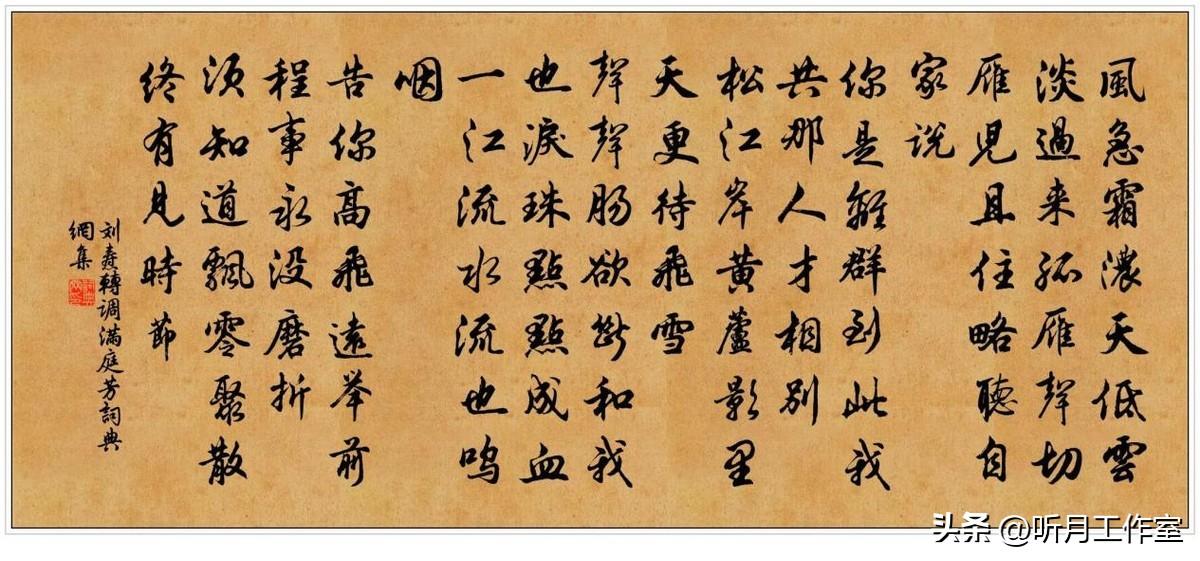 風急霜濃天低雲
淡過来孤雁聲切
雁児且住略聽自
家说
你是離群到此我
共那人才相别
松江岸黄蘆影里
天更待飛雪
聲聲肠欲斷和我
也淚珠點點成血
一江流水流也呜
咽
告你高飛遠举前
程事永没磨折
须知道飄零聚散
终有見時節
刘燾轉调满庭芳詞典
網集
头条 @听月工作室